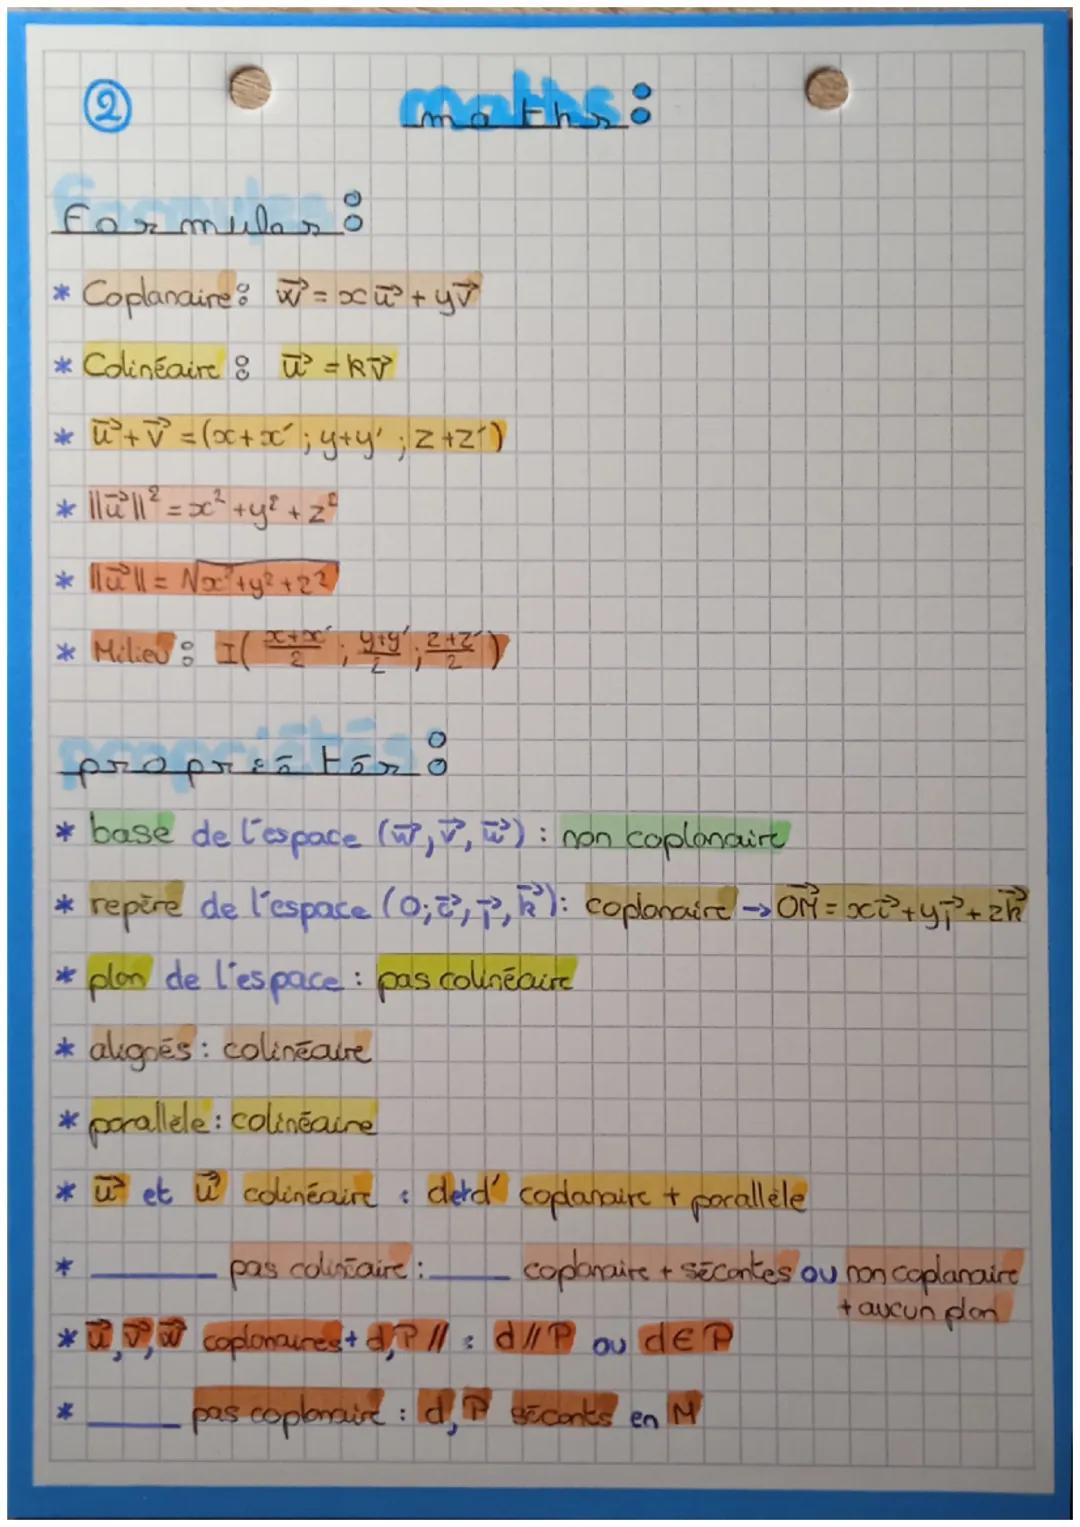 ②
maths :
formules :
* Coplanaire : w⃗ = xu⃗ + yv⃗
* Colinéaire : u⃗ = kv⃗
* u⃗ + v⃗ = (x+x' ; y+y' ; z+z')
* ||u⃗||² = x² + y² + z²
* ||u⃗|| = √x²+y²+z²
* Milieu : I( x+x'/2 ; y+y'/2 ; z+z'/2 )
propriétés :
* base de l'espace (w⃗, v⃗, u⃗) : non coplanaire
* repère de l'espace (O; i⃗, j⃗, k⃗) : coplanaire → OM⃗ = xi⃗ + yj⃗ + zk⃗
* plan de l'espace : pas colinéaire
* alignés : colinéaire
* parallèle : colinéaire
* u⃗ et u⃗' colinéaire : d et d' coplanaire + parallèle
* ______ pas colinéaire : ____ coplanaire + sécantes ou non coplanaire
+ aucun plan
* u⃗, v⃗, w⃗ coplanaires + d, P // : d // P ou d ∈ P
* ____ pas coplanaire : d, P sécants en M